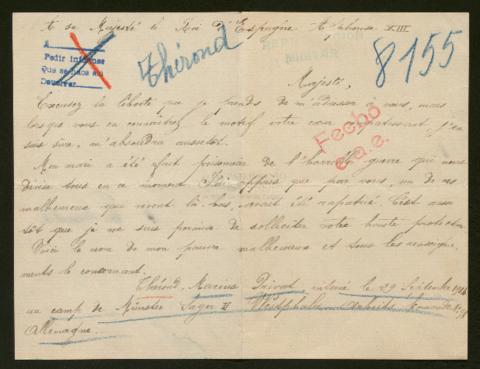 A sa Majesté le Roi d'Espagne Alphonse XIII
A
Pedir informes
Que se hace así
Devolver
Thérond
8155
Majesté,
Excusez la liberté que je prends de m'adresser à vous, mais
lorsque vous en connaîtrez le motif votre cœur compatissant, j'en
suis sûre, m'absoudra aussitôt.
Mon mari a été fait prisonnier de l'horrible guerre qui nous
divise tous en ce moment. J'ai appris que par vous, un de ces
malheureux qui vivent là-bas, avait été rapatrié. C'est aussi
tôt que je me suis permise de solliciter votre haute protection.
Voici le nom de mon pauvre malheureux et tous les renseigne-
ments le concernant.
Fecho
Thérond, Marcius Privat, interné le 29 Septembre 1914
au camp de Münster Lager II Westphalie
Allemagne.